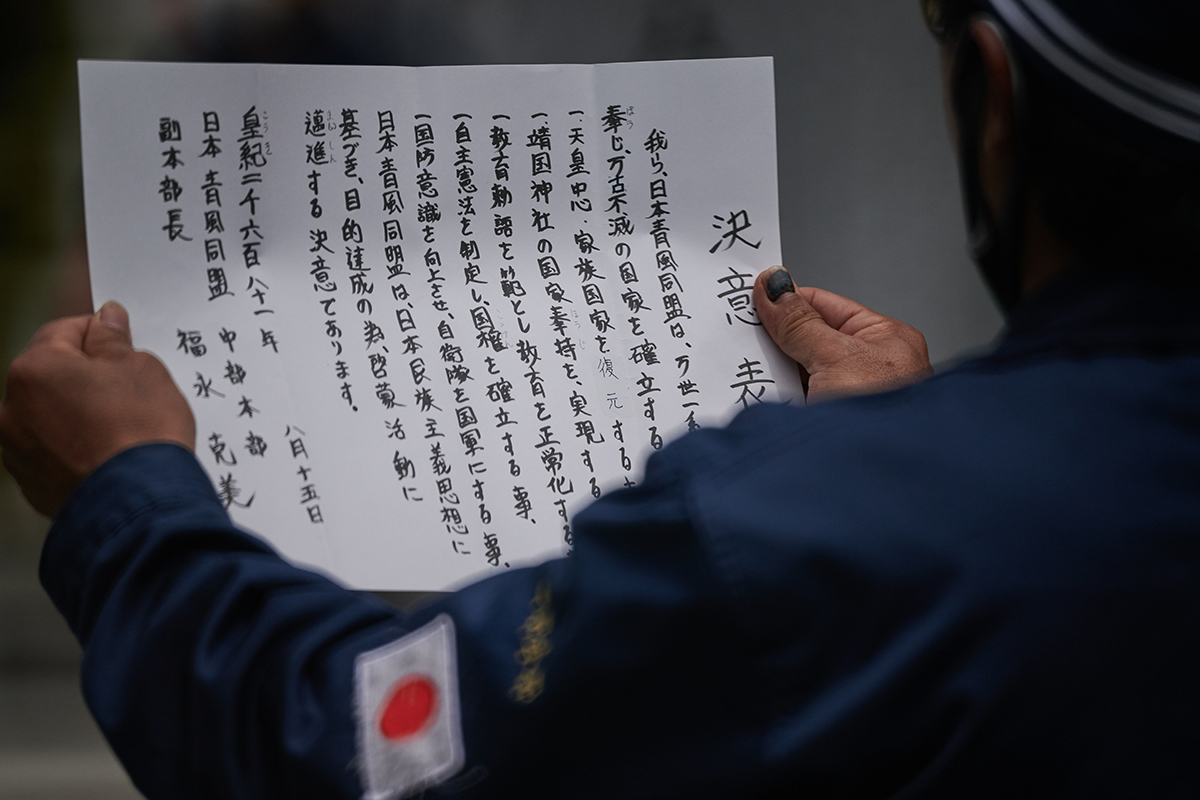 決意表
我ら、日本青風同盟は、万世一系
奉じ、万古不滅の国家を確立する
ほう
一、天皇中心、家族国家を復元する
一、靖国神社の国家奉持を、実現する
ほうじ
一、教育勅語を範とし教育を正常化する
一、自主憲法を制定し、国権を確立する事、
一、国防意識を向上させ、自衛隊を国軍にする事、
日本青風同盟は、日本民族主義思想に
基づき、目的達成の為啓蒙活動に
邁進する決意であります。
まいしん
皇紀二千六百八十一年 八月十五日
こうき
日本青風同盟 中部本部
副本部長 福永 克美